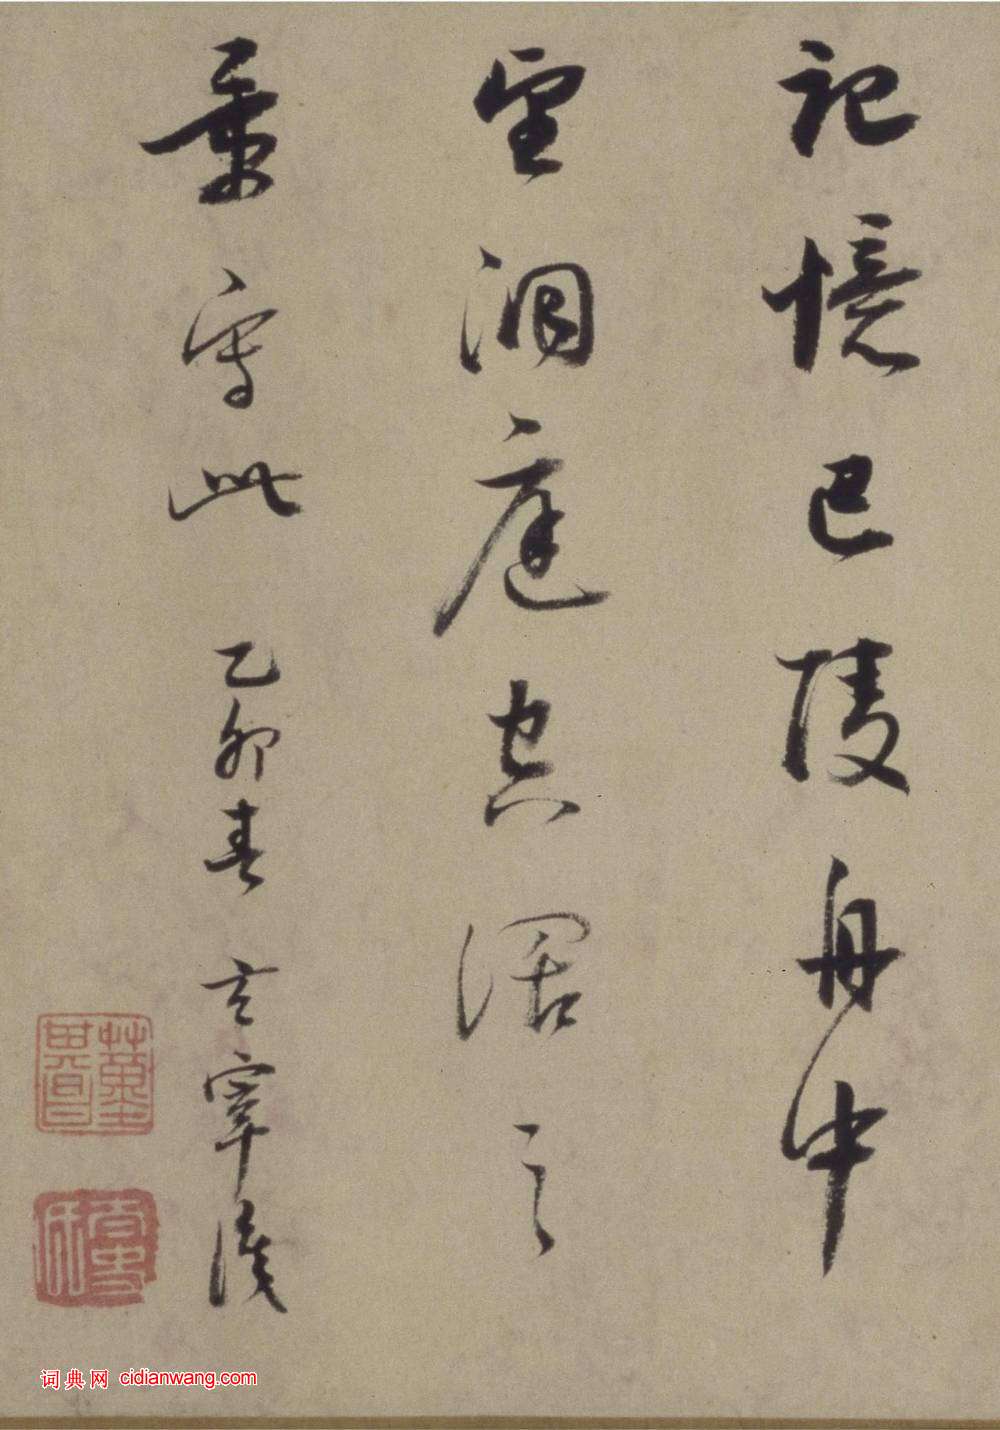 記憶巴陵舟中
望洞庭空闊之
景寫此 乙卯春 玄宰識
董其昌
詞典网 cidianwang.com